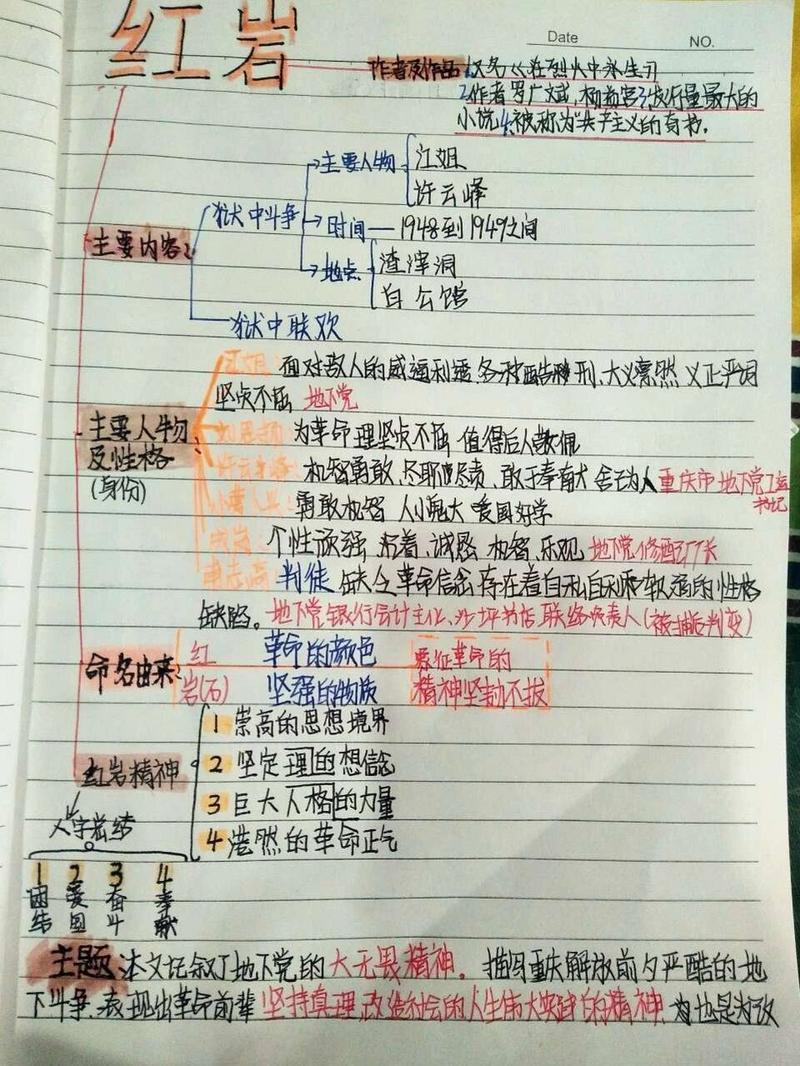 红岩
Date
NO.
作者及作品 1.又名《在烈火中永生》
2.作者罗广斌,杨益言3.发行量最大的
小说4.被称为"共产主义的奇书。
主要内容:
狱中斗争
主要人物
江姐
许云峰
时间—1948到1949之间
地点
渣滓洞
白公馆
狱中联欢
主要人物
及性格
(身份)
江姐:面对敌人的威逼利透、各种酷刑、大义凛然 义正严词
坚贞不屈 地下党
刘思扬:为革命理坚贞不屈 值得后人敬佩
许云峰:机智勇敢、尽职尽责、敢于奉献 舍己为人 重庆市地下党工运
书记
小萝卜头:勇敢机智 人小鬼大 爱国好学
成岗:个性顽强 沉着、诚恳、机智、乐观 地下党修配厂厂长
甫志高 判徒 缺乏革命信念 存在着自私自利和软弱的性格
缺陷。地下党银行会计主任、沙坪书店联络负责人(被捕后判变)
命名由来:
红 革命的颜色
岩(石) 坚强的物质
象征革命的
精神坚韧不拔
红岩精神
1 崇高的思想境界
2 坚定理的想信念
3 巨大人格的力量
4 浩然的革命正气
八字总结
1 团结
2 爱国
3 奋斗
4 奉献
主题 本文记叙了地下党的大无畏精神。描写重庆解放前夕严酷的地
下斗争、表现出革命前辈坚持真理,改造社会的人生伟大实践的精神